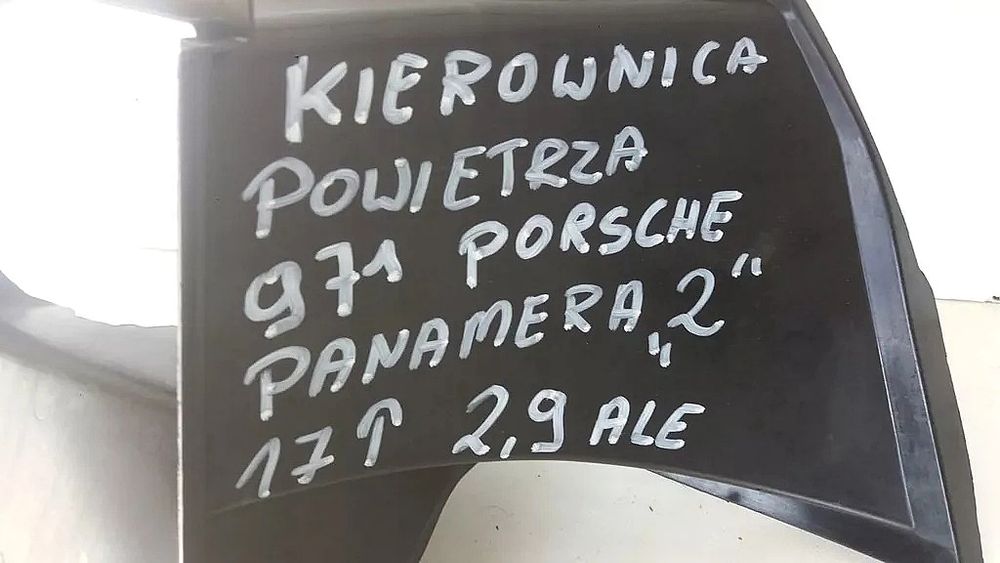 KIEROWNICA
POWIETRZA
971 PORSCHE
PANAMERA „2"
17↑ 2,9 ALE